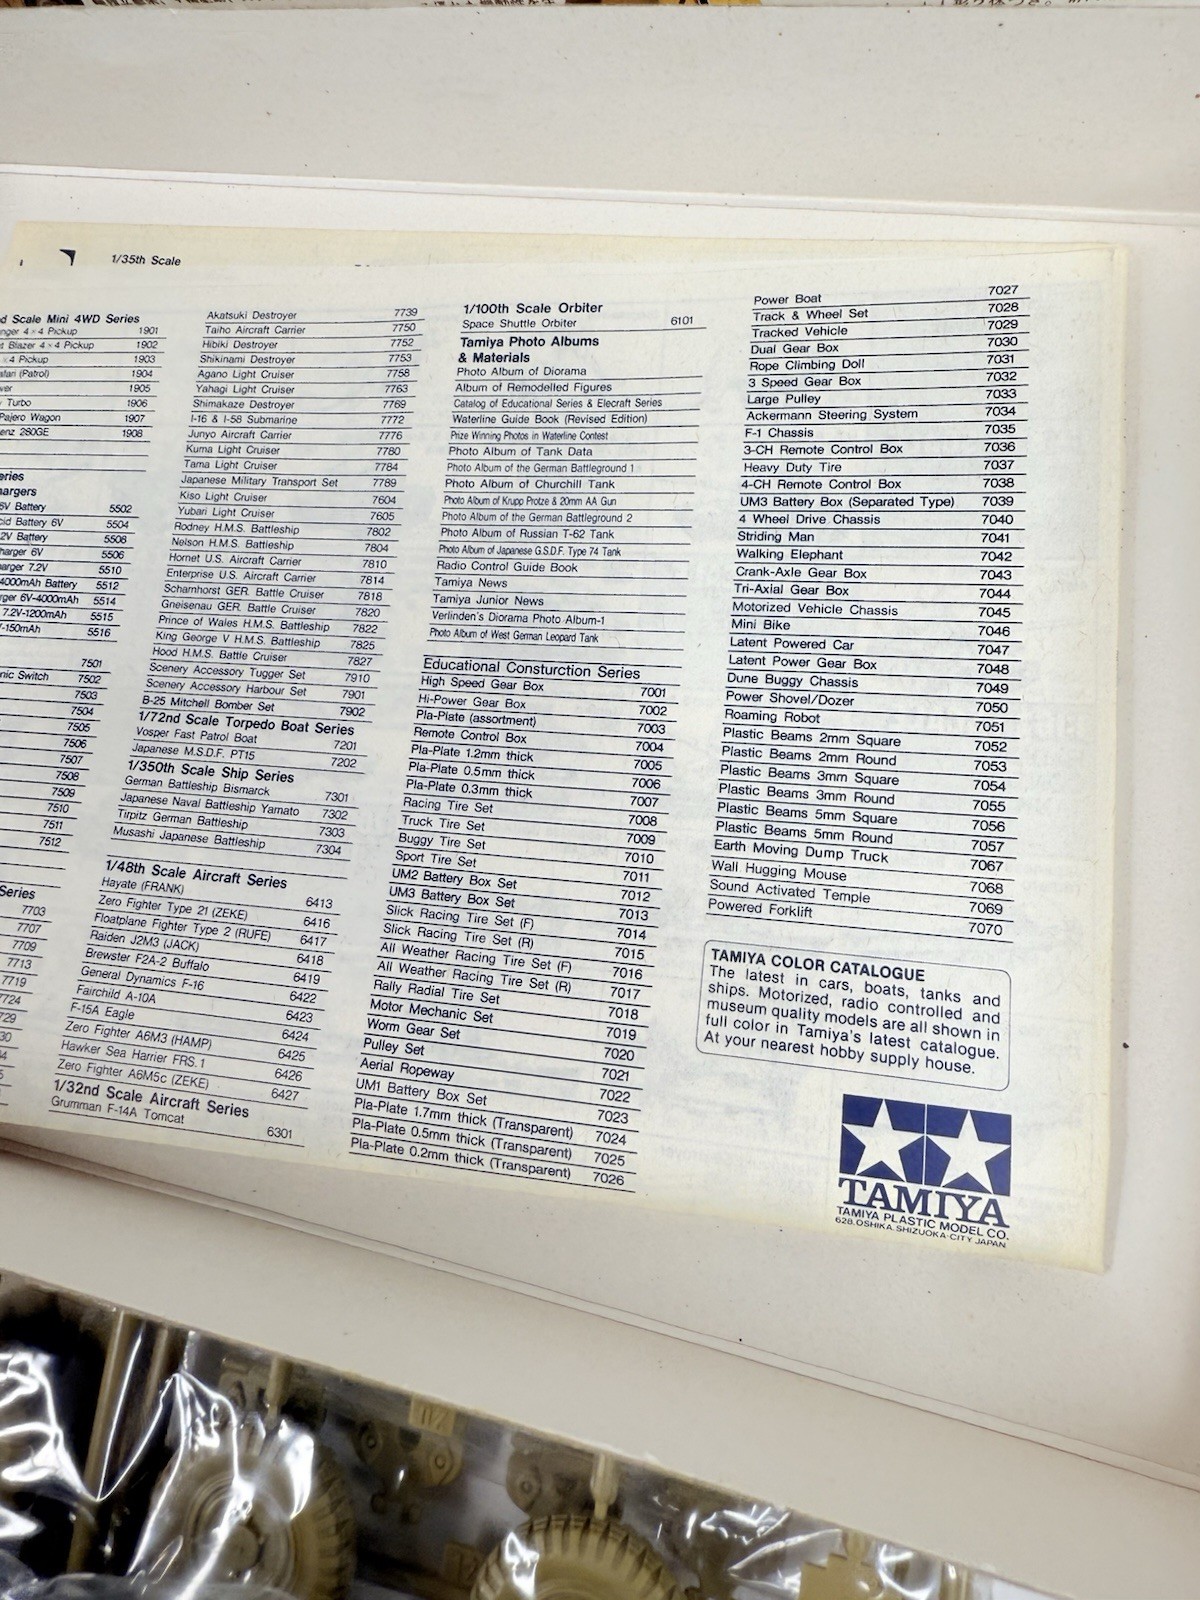 1/35th Scale
d Scale Mini 4WD Series
nger 4×4 Pickup 1901
t Blazer 4×4 Pickup 1902
×4 Pickup 1903
afari (Patrol) 1904
ver 1905
Turbo 1906
Pajero Wagon 1907
enz 280GE 1908
eries
hargers
6V Battery 5502
cid Battery 6V 5504
.2V Battery 5508
harger 6V 5506
arger 7.2V 5510
4000mAh Battery 5512
rger 6V-4000mAh 5514
7.2V-1200mAh 5515
-150mAh 5516
7501
nic Switch 7502
7503
7504
7505
7506
7507
7508
7509
7510
7511
7512
Series
7703
7707
7709
7713
7719
7724
729
30
Akatsuki Destroyer 7739
Taiho Aircraft Carrier 7750
Hibiki Destroyer 7752
Shikinami Destroyer 7753
Agano Light Cruiser 7758
Yahagi Light Cruiser 7763
Shimakaze Destroyer 7769
I-16 & I-58 Submarine 7772
Junyo Aircraft Carrier 7776
Kuma Light Cruiser 7780
Tama Light Cruiser 7784
Japanese Military Transport Set 7789
Kiso Light Cruiser 7604
Yubari Light Cruiser 7605
Rodney H.M.S. Battleship 7802
Nelson H.M.S. Battleship 7804
Hornet U.S. Aircraft Carrier 7810
Enterprise U.S. Aircraft Carrier 7814
Scharnhorst GER. Battle Cruiser 7818
Gneisenau GER. Battle Cruiser 7820
Prince of Wales H.M.S. Battleship 7822
King George V H.M.S. Battleship 7825
Hood H.M.S. Battle Cruiser 7827
Scenery Accessory Tugger Set 7910
Scenery Accessory Harbour Set 7901
B-25 Mitchell Bomber Set 7902
1/72nd Scale Torpedo Boat Series
Vosper Fast Patrol Boat 7201
Japanese M.S.D.F. PT15 7202
1/350th Scale Ship Series
German Battleship Bismarck 7301
Japanese Naval Battleship Yamato 7302
Tirpitz German Battleship 7303
Musashi Japanese Battleship 7304
1/48th Scale Aircraft Series
Hayate (FRANK) 6413
Zero Fighter Type 21 (ZEKE) 6416
Floatplane Fighter Type 2 (RUFE) 6417
Raiden J2M3 (JACK) 6418
Brewster F2A-2 Buffalo 6419
General Dynamics F-16 6422
Fairchild A-10A 6423
F-15A Eagle 6424
Zero Fighter A6M3 (HAMP) 6425
Hawker Sea Harrier FRS.1 6426
Zero Fighter A6M5c (ZEKE) 6427
1/32nd Scale Aircraft Series
Grumman F-14A Tomcat 6301
1/100th Scale Orbiter
Space Shuttle Orbiter 6101
Tamiya Photo Albums
& Materials
Photo Album of Diorama
Album of Remodelled Figures
Catalog of Educational Series & Elecraft Series
Waterline Guide Book (Revised Edition)
Prize Winning Photos in Waterline Contest
Photo Album of Tank Data
Photo Album of the German Battleground 1
Photo Album of Churchill Tank
Photo Album of Krupp Protze & 20mm AA Gun
Photo Album of the German Battleground 2
Photo Album of Russian T-62 Tank
Photo Album of Japanese G.S.D.F. Type 74 Tank
Radio Control Guide Book
Tamiya News
Tamiya Junior News
Verlinden's Diorama Photo Album-1
Photo Album of West German Leopard Tank
Educational Consturction Series
High Speed Gear Box 7001
Hi-Power Gear Box 7002
Pla-Plate (assortment) 7003
Remote Control Box 7004
Pla-Plate 1.2mm thick 7005
Pla-Plate 0.5mm thick 7006
Pla-Plate 0.3mm thick 7007
Racing Tire Set 7008
Truck Tire Set 7009
Buggy Tire Set 7010
Sport Tire Set 7011
UM2 Battery Box Set 7012
UM3 Battery Box Set 7013
Slick Racing Tire Set (F) 7014
Slick Racing Tire Set (R) 7015
All Weather Racing Tire Set (F) 7016
All Weather Racing Tire Set (R) 7017
Rally Radial Tire Set 7018
Motor Mechanic Set 7019
Worm Gear Set 7020
Pulley Set 7021
Aerial Ropeway 7022
UM1 Battery Box Set 7023
Pla-Plate 1.7mm thick (Transparent) 7024
Pla-Plate 0.5mm thick (Transparent) 7025
Pla-Plate 0.2mm thick (Transparent) 7026
Power Boat 7027
Track & Wheel Set 7028
Tracked Vehicle 7029
Dual Gear Box 7030
Rope Climbing Doll 7031
3 Speed Gear Box 7032
Large Pulley 7033
Ackermann Steering System 7034
F-1 Chassis 7035
3-CH Remote Control Box 7036
Heavy Duty Tire 7037
4-CH Remote Control Box 7038
UM3 Battery Box (Separated Type) 7039
4 Wheel Drive Chassis 7040
Striding Man 7041
Walking Elephant 7042
Crank-Axle Gear Box 7043
Tri-Axial Gear Box 7044
Motorized Vehicle Chassis 7045
Mini Bike 7046
Latent Powered Car 7047
Latent Power Gear Box 7048
Dune Buggy Chassis 7049
Power Shovel/Dozer 7050
Roaming Robot 7051
Plastic Beams 2mm Square 7052
Plastic Beams 2mm Round 7053
Plastic Beams 3mm Square 7054
Plastic Beams 3mm Round 7055
Plastic Beams 5mm Square 7056
Plastic Beams 5mm Round 7057
Earth Moving Dump Truck 7067
Wall Hugging Mouse 7068
Sound Activated Temple 7069
Powered Forklift 7070
TAMIYA COLOR CATALOGUE
The latest in cars, boats, tanks and
ships. Motorized, radio controlled and
museum quality models are all shown in
full color in Tamiya's latest catalogue.
At your nearest hobby supply house.
TAMIYA
TAMIYA PLASTIC MODEL CO.
628, OSHIKA, SHIZUOKA-CITY JAPAN.